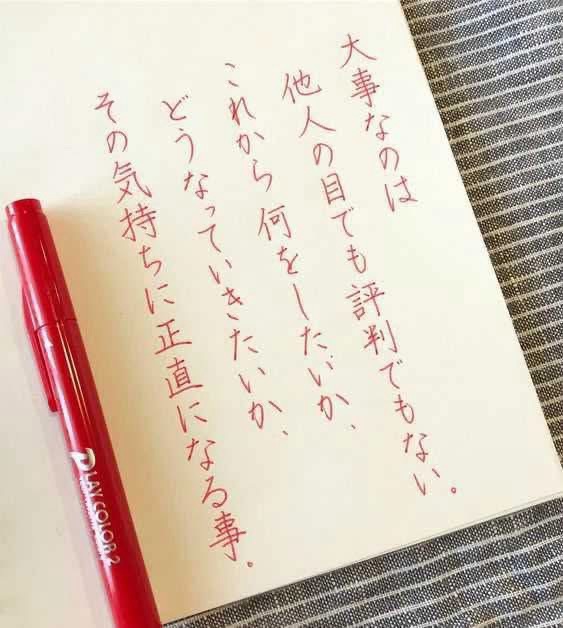 大事なのは
他人の目でも評判でもない。
これから何をしたいか、
どうなっていきたいか、
その気持ちに正直になる事。
PLAY COLOR 2